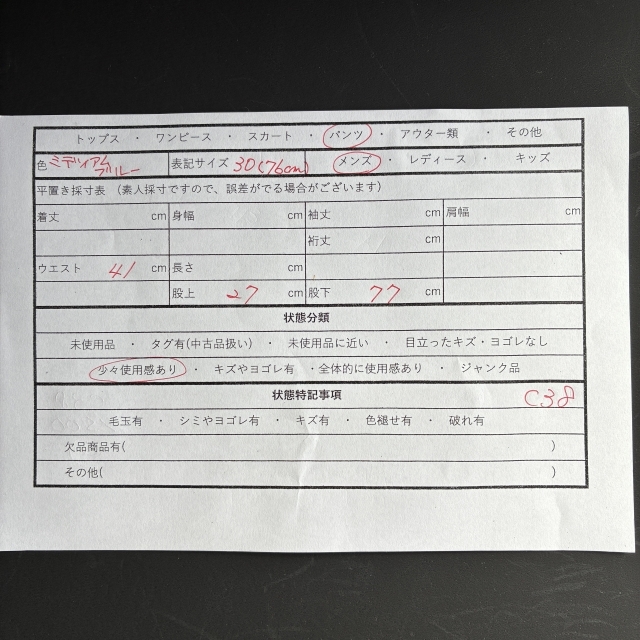 トップス ・ ワンピース ・ スカート ・ パンツ ・ アウター類 ・ その他
色 ミディアムブルー 表記サイズ 30(76cm) メンズ ・ レディース ・ キッズ
平置き採寸表 (素人採寸ですので、誤差がでる場合がございます)
着丈 cm 身幅 cm 袖丈 cm 肩幅 cm
裄丈 cm
ウエスト 41 cm 長さ cm
股上 27 cm 股下 77 cm
状態分類
未使用品 ・ タグ有(中古品扱い) ・ 未使用品に近い ・ 目立ったキズ・ヨゴレなし
少々使用感あり ・ キズやヨゴレ有 ・全体的に使用感あり ・ ジャンク品
状態特記事項 C38
毛玉有 ・ シミやヨゴレ有 ・ キズ有 ・ 色褪せ有 ・ 破れ有
欠品商品有( )
その他( )